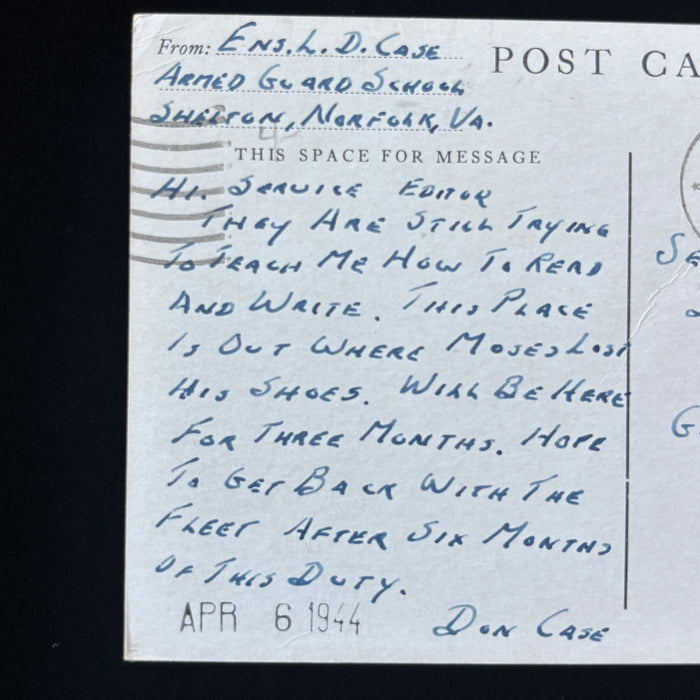 From: ENS. L. D. CASE
POST CA
ARMED GUARD SCHOOL
SHELTON, NORFOLK, VA.
THIS SPACE FOR MESSAGE
HI. SERVICE EDITOR
THEY ARE STILL TRYING
TO TEACH ME HOW TO READ
AND WRITE. THIS PLACE
IS OUT WHERE MOSES LOST
HIS SHOES. WILL BE HERE
FOR THREE MONTHS. HOPE
TO GET BACK WITH THE
FLEET AFTER SIX MONTHS
OF THIS DUTY.
APR 6 1944
DON CASE
SE
G